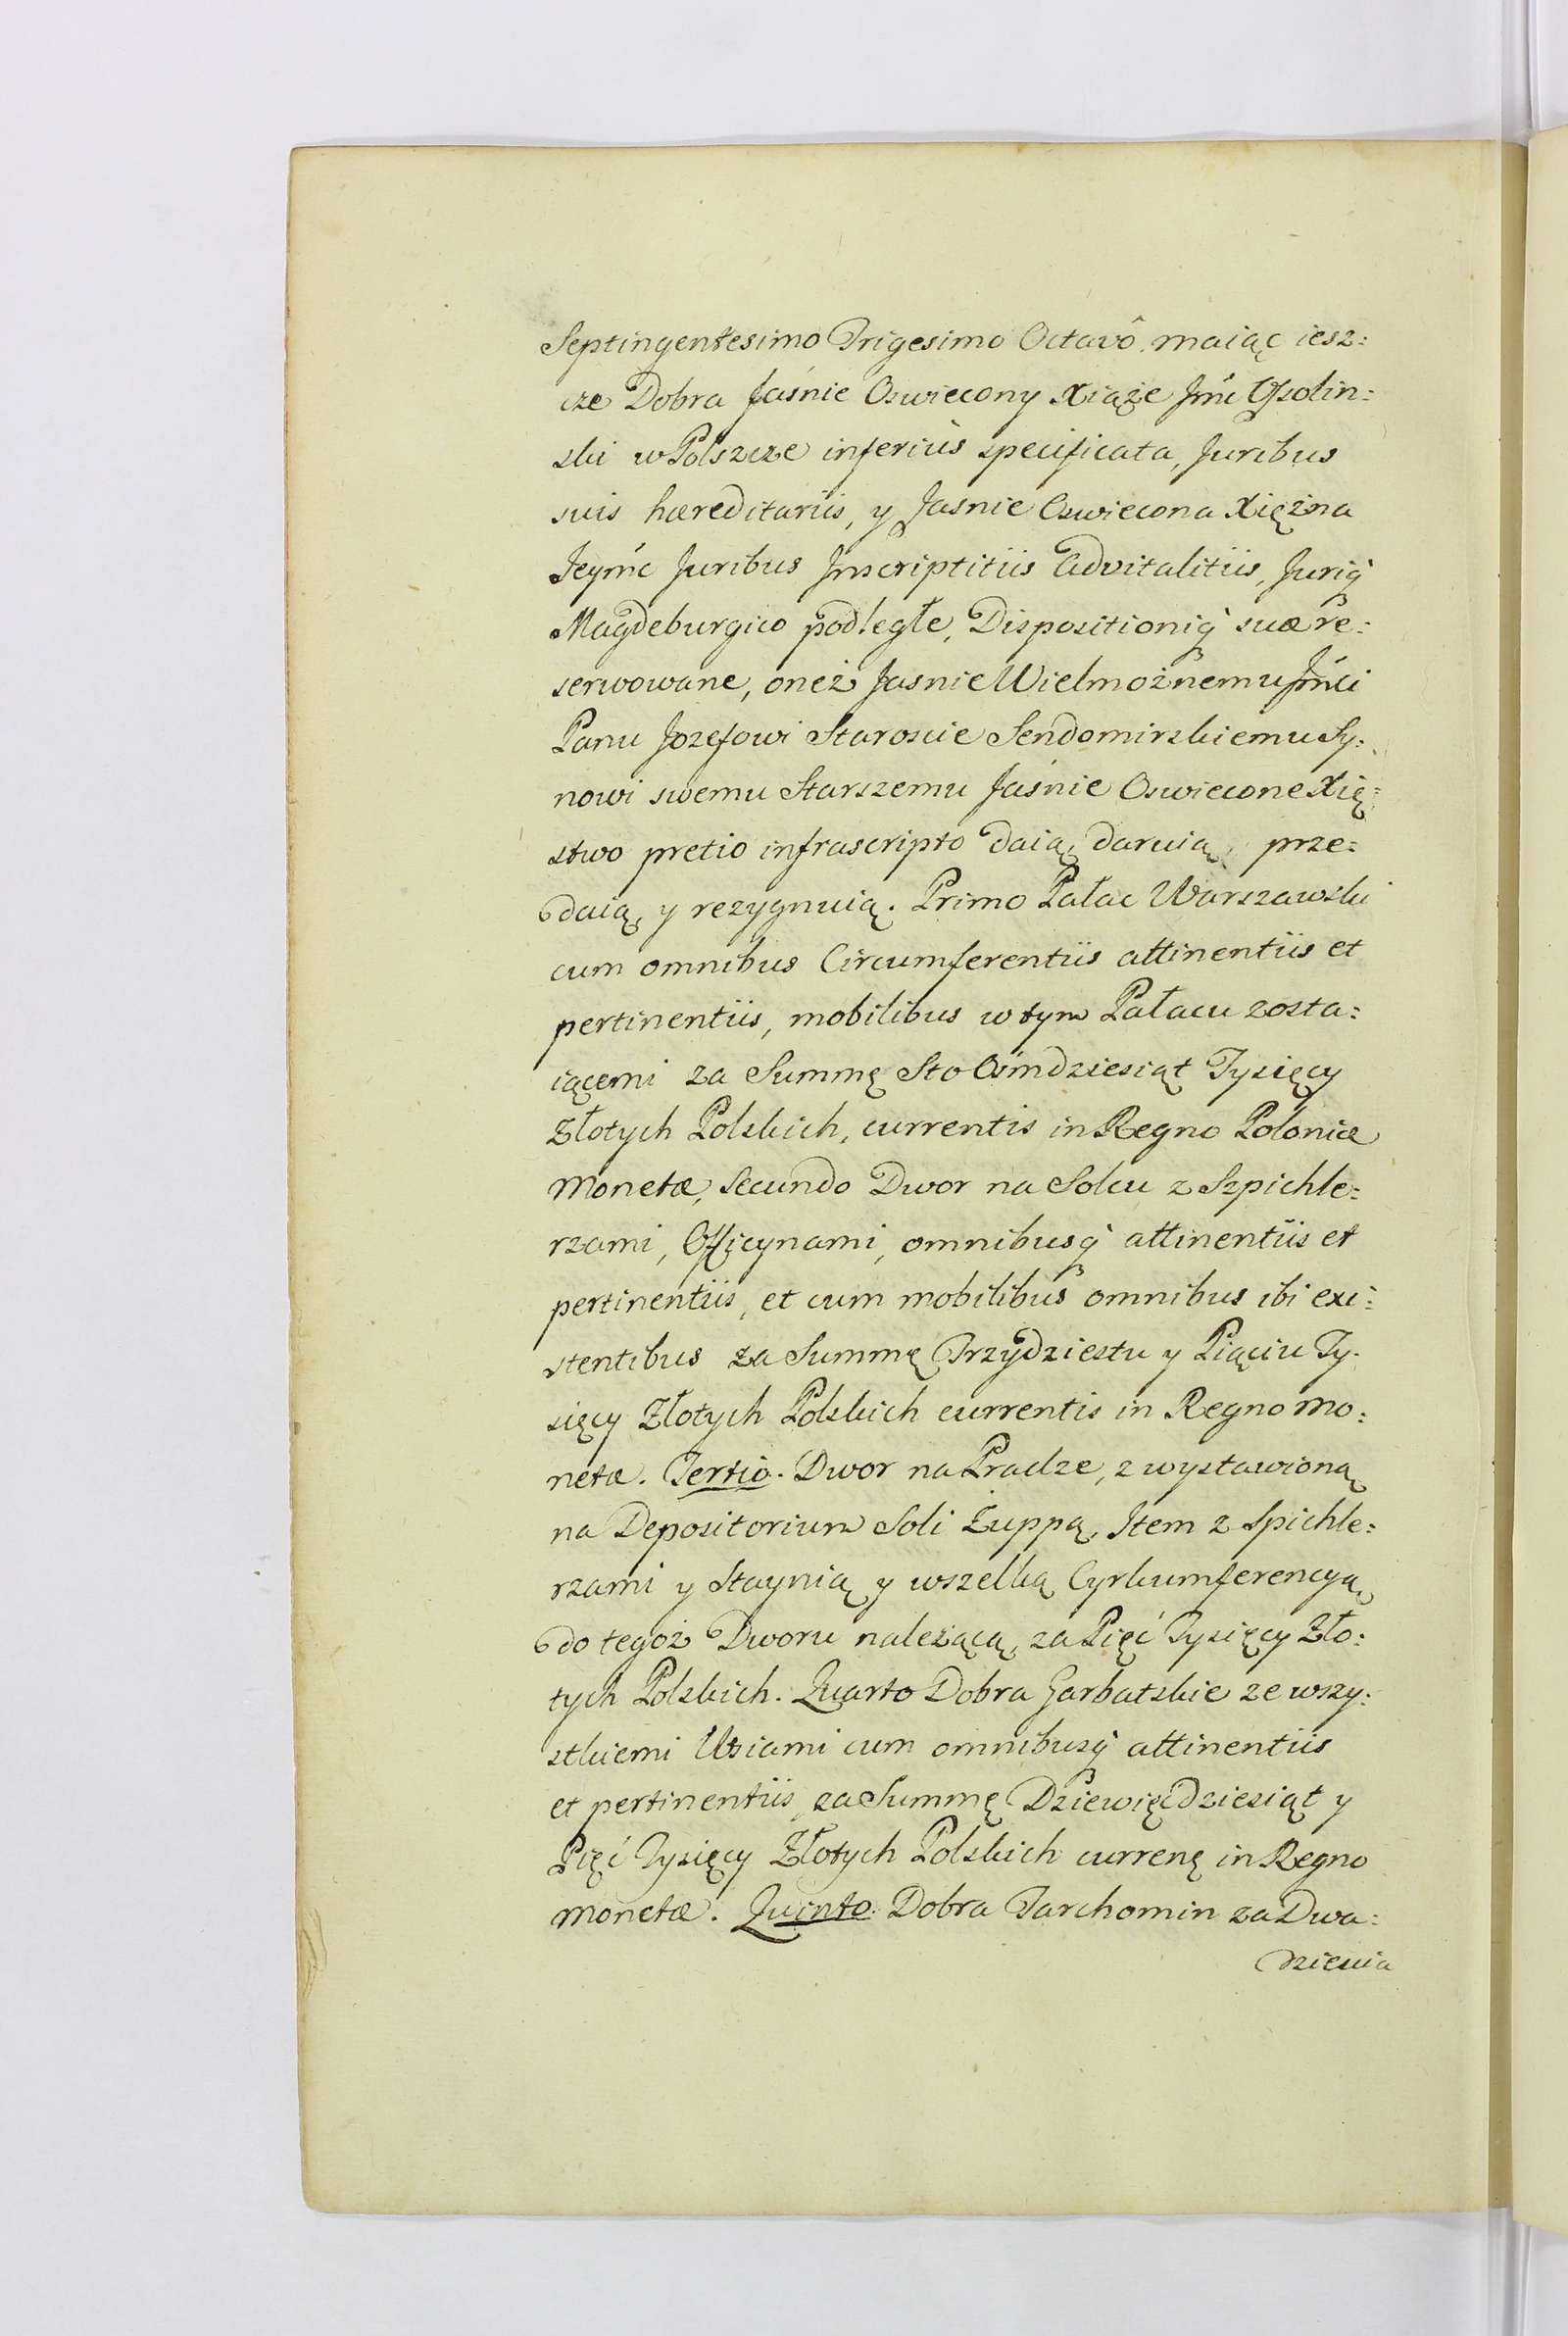 Septingentesimo Trigesimo Octavô maiąc iesz:
cze Dobra Jaśnie Oswiecony Xiąże Jmć Ossolin:
ski w Polszcze inferius specificata, Juribus
suis hæreditariis, y Jasnie Oswiecona Xiężna
Jeymć Juribus Jnscriptitiis Advitalitiis, Juriq̀
Magdeburgico podległe, Dispositioniq̀ suæ re:
serwowane, oneż Jasnie Wielmożnemu Jmći
Panu Jozefowi Staroscie Sendomirskiemu Sy:
nowi swemu Starszemu Jaśnie Oswiecone Xię:
stwo pretio infrascripto daią, daruią, prze:
daią, y rezygnuią. Primo Pałac Warszawski
cum omnibus Circumferentiis attinentiis et
pertinentiis, mobilibus w tym Pałacu zosta:
iącemi za Summę Sto Ośmdziesiąt Tysięcy
Złotych Polskich, currentis in Regno Poloniæ
Monetæ, Secundo Dwor na Solcu z Szpichle:
rzami, Officynami, omnibusq̀ attinentiis et
pertinentiis, et cum mobilibus omnibus ibi exi:
stentibus za Summę Trzydziestu y Piąciu Ty:
sięcy Złotych Polskich currentis in Regno Mo:
netæ. Tertio. Dwor na Pradze, z wystawioną
na Depositorium Soli Żuppą, Jtem z Spichle:
rzami y Staynią y wszelką Cyrkumferencyą
do tegoż Dworu należącą, za Pięć Tysięcy Zło:
tych Polskich. Quarto Dobra Garbatskie ze wszy:
stkiemi Wsiami cum omnibusq̀ attinentiis
et pertinentiis, za Summę Dziewięćdziesiąt y
Pięć Tysięcy Złotych Polskich currenę in Regno
Monetæ. Quinto. Dobra Tarchomin za Dwa:
dziescia